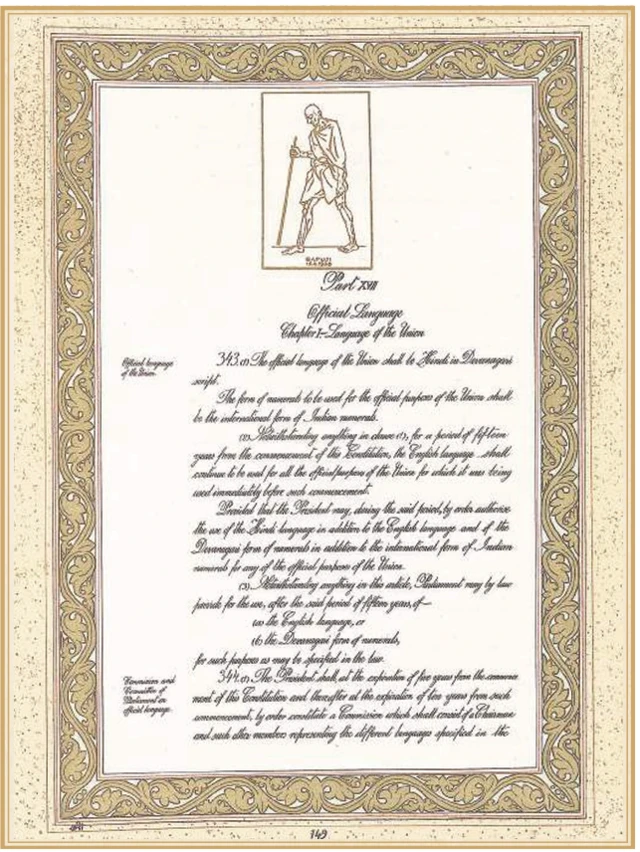 BAPUJI
12.4.1930
Part XVII
Official Language
Chapter I.—Language of the Union
Official language
of the Union.
343. (1) The official language of the Union shall be Hindi in Devanagari
script.
The form of numerals to be used for the official purposes of the Union shall
be the international form of Indian numerals.
(2) Notwithstanding anything in clause (1), for a period of fifteen
years from the commencement of this Constitution, the English language shall
continue to be used for all the official purposes of the Union for which it was being
used immediately before such commencement:
Provided that the President may, during the said period, by order authorise
the use of the Hindi language in addition to the English language and of the
Devanagari form of numerals in addition to the international form of Indian
numerals for any of the official purposes of the Union.
(3) Notwithstanding anything in this article, Parliament may by law
provide for the use, after the said period of fifteen years, of—
(a) the English language, or
(b) the Devanagari form of numerals,
for such purposes as may be specified in the law.
Commission and
Committee of
Parliament on
official language.
344. (1) The President shall, at the expiration of five years from the commence
ment of this Constitution and thereafter at the expiration of ten years from such
commencement, by order constitute a Commission which shall consist of a Chairman
and such other members representing the different languages specified in the
149